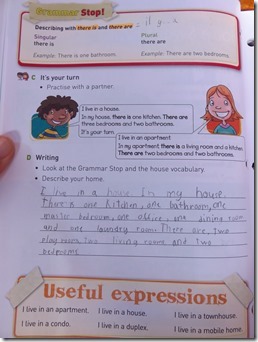 Grammar Stop!
Describing with there is and there are = il y a
Singular
there is
Example: There is one bathroom.
Plural
there are
Example: There are two bedrooms.
C It's your turn
• Practise with a partner.
I live in a house.
In my house, there is one kitchen. There are
three bedrooms and two bathrooms.
It's your turn.
I live in an apartment.
In my apartment there is a living room and a kitchen.
There are two bedrooms and two bathrooms.
D Writing
• Look at the Grammar Stop and the house vocabulary.
• Describe your home.
I live in a house. In my house
there is one kitchen, one bathroom, one
master bedroom, one office, one dining room
and one laundry room. There are, two
play room, two living rooms and two
bedrooms
Useful expressions
I live in an apartment.
I live in a house.
I live in a townhouse.
I live in a condo.
I live in a duplex.
I live in a mobile home.